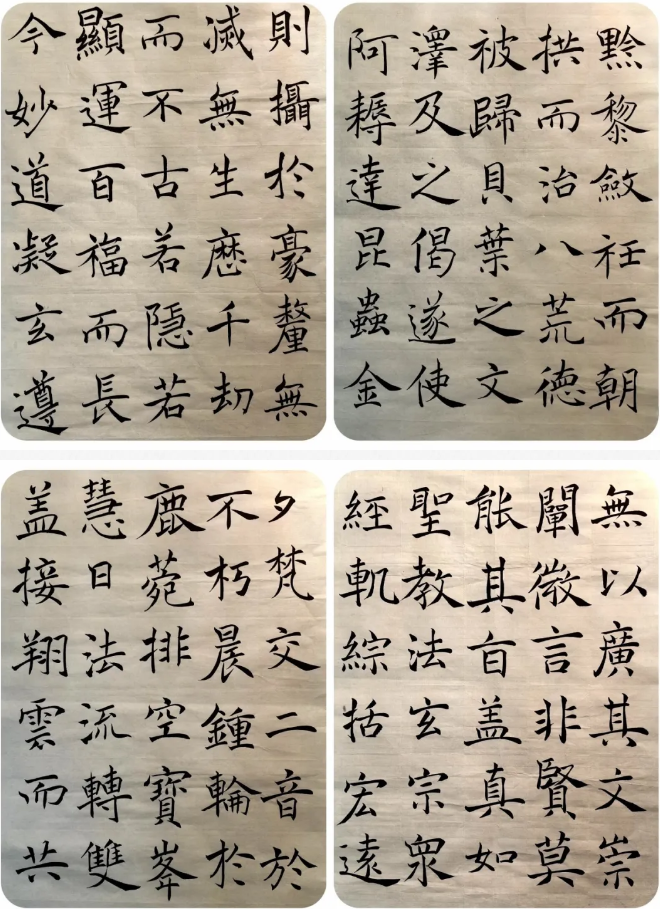 則攝於豪釐無
滅無生歷千劫
而不古若隱若
顯運百福而長
今妙道凝玄遵
黔黎斂衽而朝
拱而治八荒德
被歸貝葉之文
澤及之偈遂使
阿耨達昆蟲金
夕梵交二音於
不朽晨鍾輪於
鹿菀排空寶峯
慧日法流轉雙
盖接翔雲而共
無以廣其文崇
闡微言非賢莫
能其旨盖真如
聖教法玄宗衆
經軌綜括宏遠